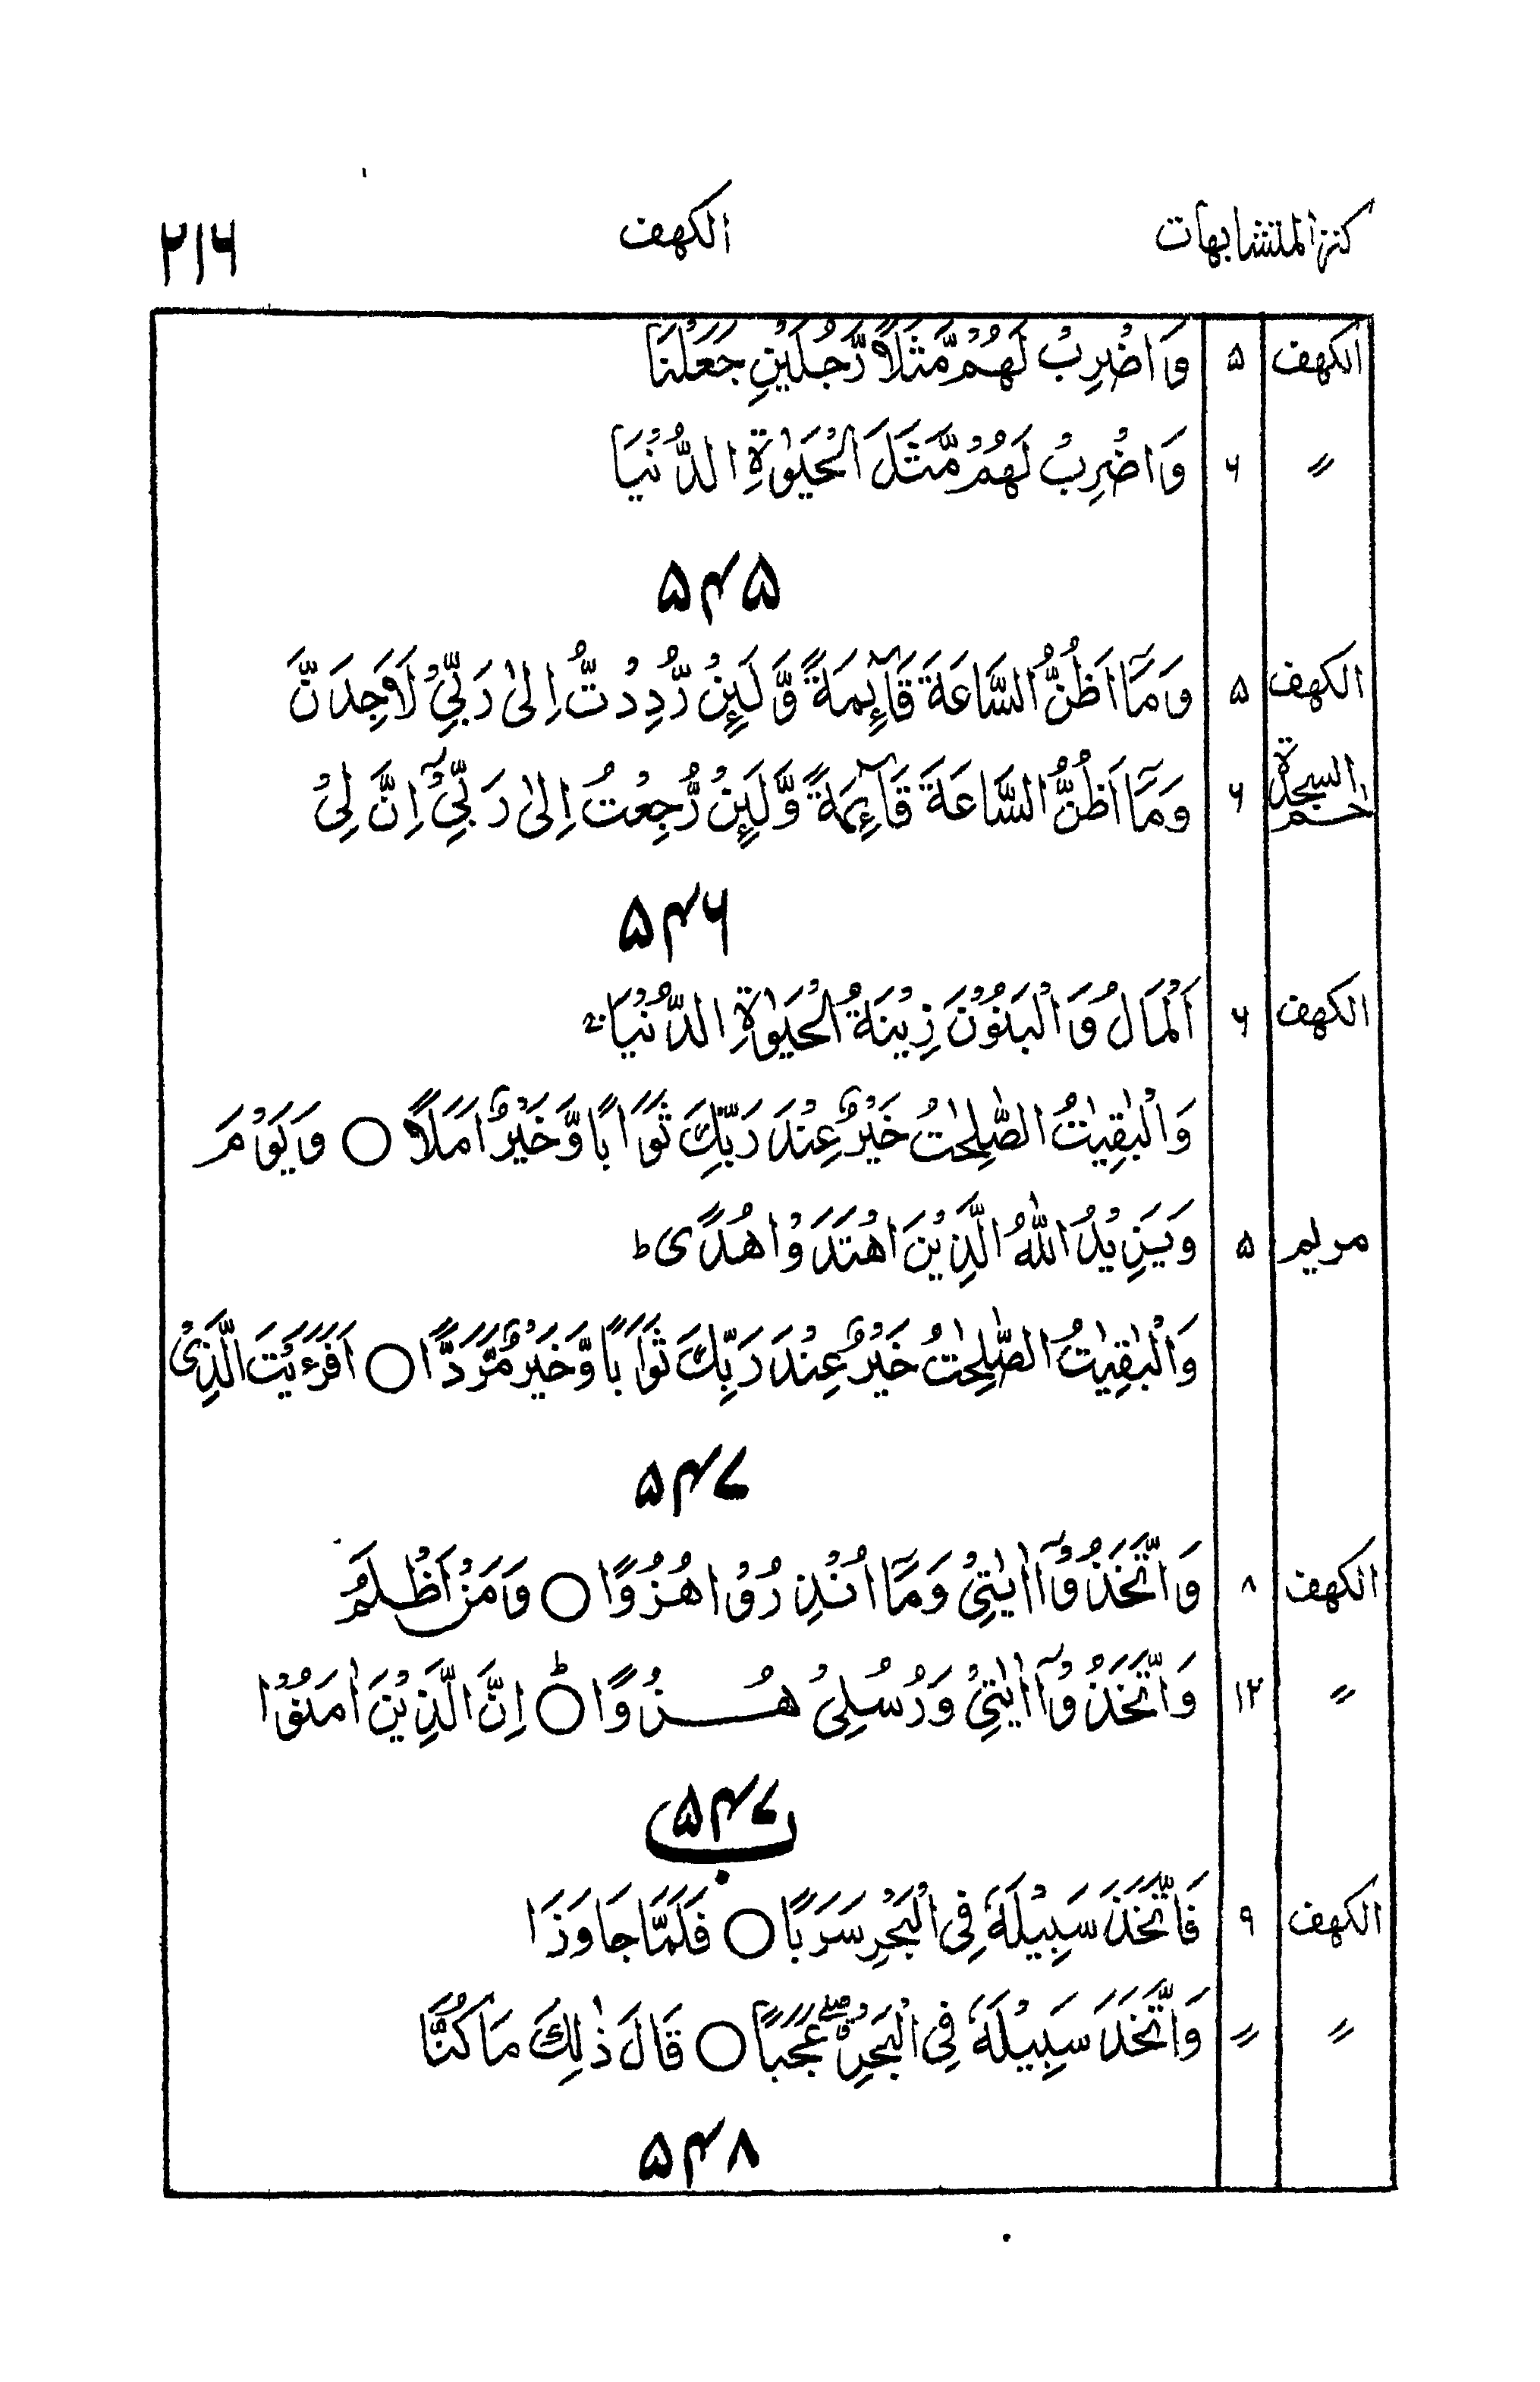 کنز المتشابهات الکهف ۲۱۶
الکهف ۵ وَاضْرِبْ لَهُمْ مَّثَلًا رَّجُلَيْنِ جَعَلْنَا
〃 ۶ وَاضْرِبْ لَهُمْ مَّثَلَ الْحَيٰوةِ الدُّنْيَا
۵۴۵
الکهف ۵ وَمَآ اَظُنُّ السَّاعَةَ قَآئِمَةً وَّلَئِنْ رُّدِدْتُّ اِلٰى رَبِّيْ لَاَجِدَنَّ
حٰم السجدة ۶ وَمَآ اَظُنُّ السَّاعَةَ قَآئِمَةً وَّلَئِنْ رُّجِعْتُ اِلٰى رَبِّيْٓ اِنَّ لِيْ
۵۴۶
الکهف ۶ اَلْمَالُ وَالْبَنُوْنَ زِيْنَةُ الْحَيٰوةِ الدُّنْيَا ۚ
وَالْبٰقِيٰتُ الصّٰلِحٰتُ خَيْرٌ عِنْدَ رَبِّكَ ثَوَابًا وَّخَيْرٌ اَمَلًا ○ وَيَوْمَ
مریم ۵ وَيَزِيْدُ اللّٰهُ الَّذِيْنَ اهْتَدَوْا هُدًى ط
وَالْبٰقِيٰتُ الصّٰلِحٰتُ خَيْرٌ عِنْدَ رَبِّكَ ثَوَابًا وَّخَيْرٌ مَّرَدًّا ○ اَفَرَءَيْتَ الَّذِيْ
۵۴۷
الکهف ۸ وَاتَّخَذُوْٓا اٰيٰتِيْ وَمَآ اُنْذِرُوْا هُزُوًا ○ وَمَنْ اَظْلَمُ
〃 ۱۲ وَاتَّخَذُوْٓا اٰيٰتِيْ وَرُسُلِيْ هُزُوًا ○ط اِنَّ الَّذِيْنَ اٰمَنُوْا
۵۴۷ ب
الکهف ۹ فَاتَّخَذَ سَبِيْلَهٗ فِي الْبَحْرِ سَرَبًا ○ فَلَمَّا جَاوَزَا
〃 〃 وَاتَّخَذَ سَبِيْلَهٗ فِي الْبَحْرِ ۖ عَجَبًا ○ قَالَ ذٰلِكَ مَا كُنَّا
۵۴۸